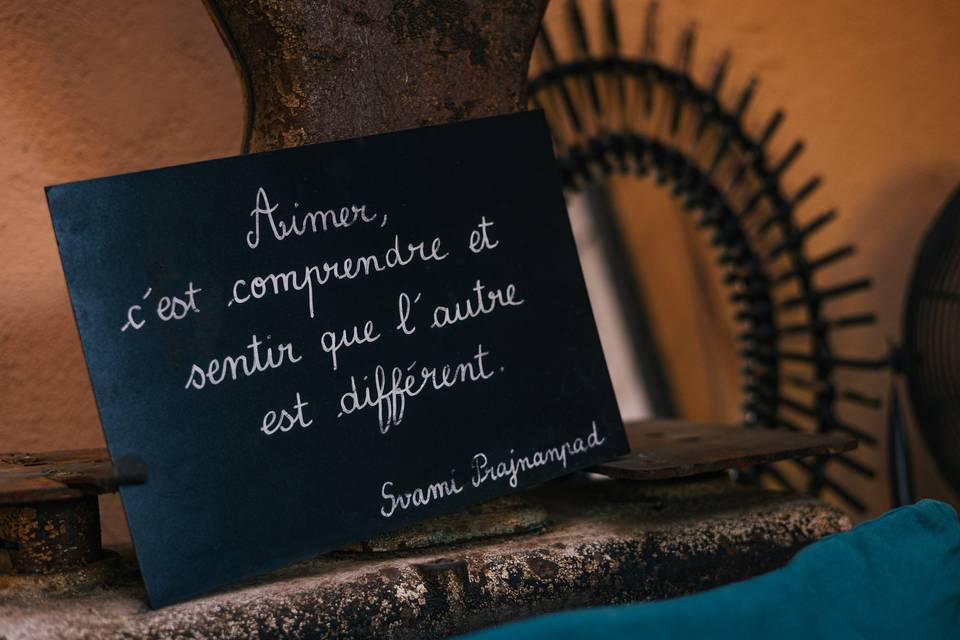 Aimer,
c'est comprendre et
sentir que l'autre
est différent.
Svami Prajnanpad